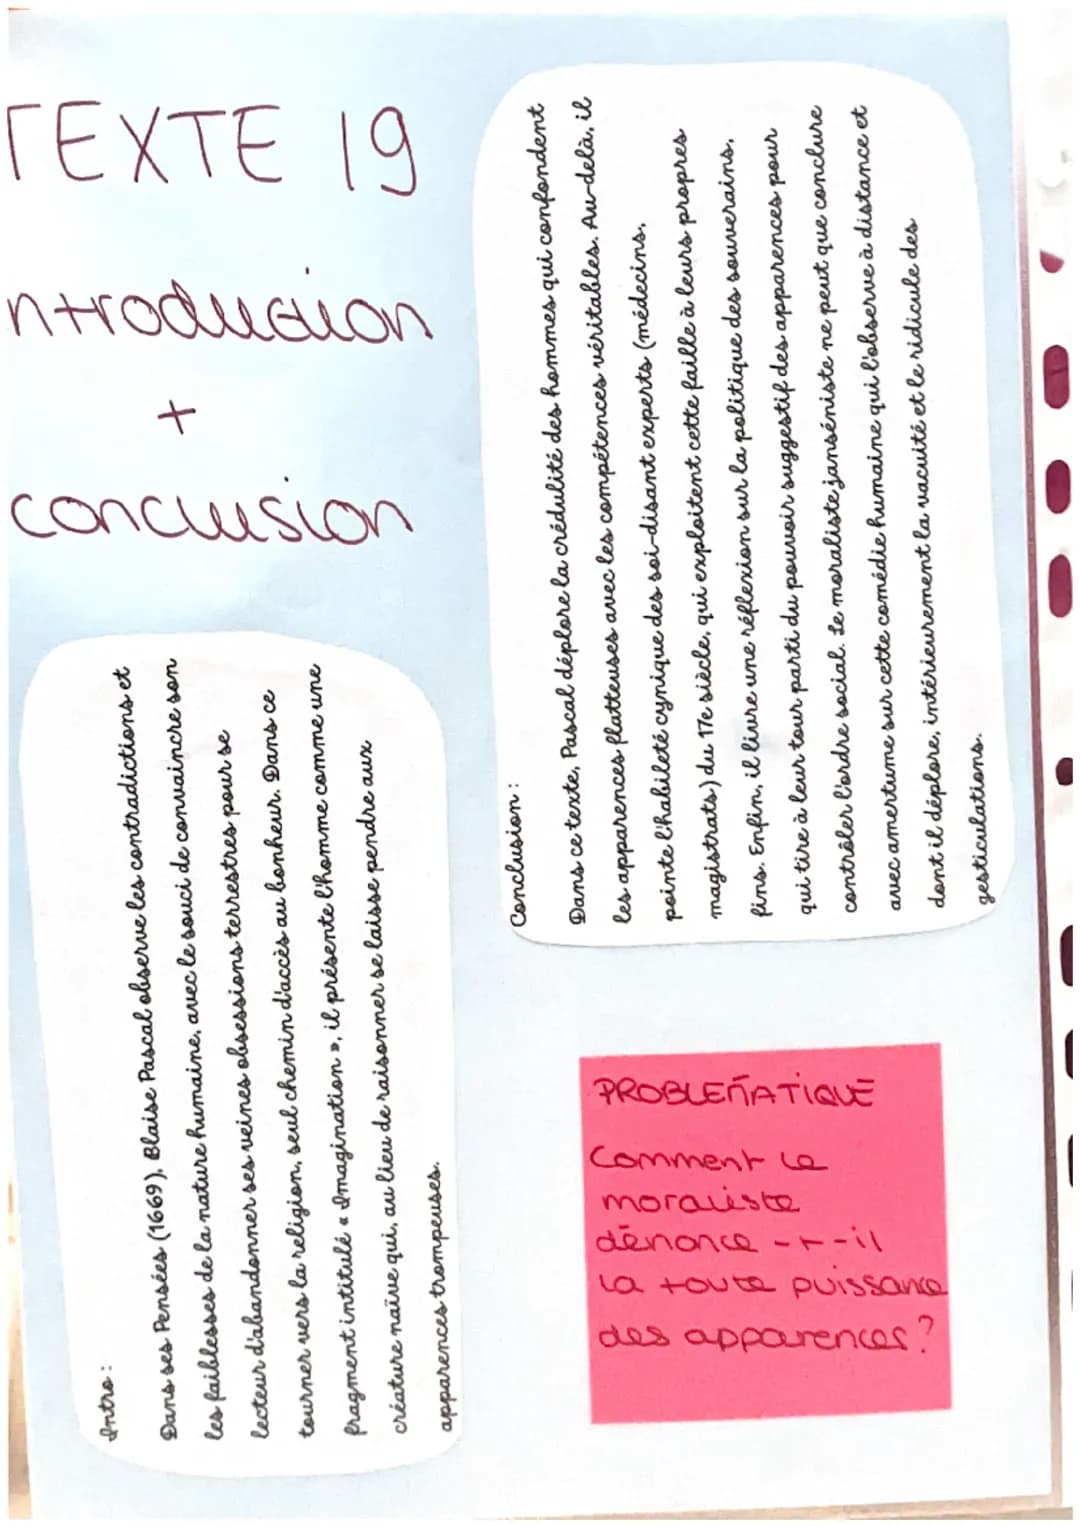 TEXTE 19
ntroduction
+
conclusion
Intro :
Dans ses Pensées (1669), Blaise Pascal observe les contradictions et
les faiblesses de la nature humaine, avec le souci de convaincre son
lecteur d'abandonner ses veines obsessions terrestres pour se
tourner vers la religion, seul chemin d'accès au bonheur. Dans ce
fragment intitulé « Imagination », il présente l'homme comme une
créature naïve qui, au lieu de raisonner se laisse pendre aux
apparences trompeuses.
PROBLEMATIQUE
Comment le
moraliste
dénonce -t-il
la toute puissance
des apparences ?
Conclusion :
Dans ce texte, Pascal déplore la crédulité des hommes qui confondent
les apparences flatteuses avec les compétences véritables. Au-delà, il
pointe l'habileté cynique des soi-disant experts (médecins,
magistrats) du 17e siècle, qui exploitent cette faille à leurs propres
fins. Enfin, il livre une réflexion sur la politique des souverains,
qui tire à leur tour parti du pouvoir suggestif des apparences pour
contrôler l'ordre social. Le moraliste janséniste ne peut que conclure
avec amertume sur cette comédie humaine qui l'observe à distance et
dont il déplore, intérieurement la vacuité et le ridicule des
gesticulations.